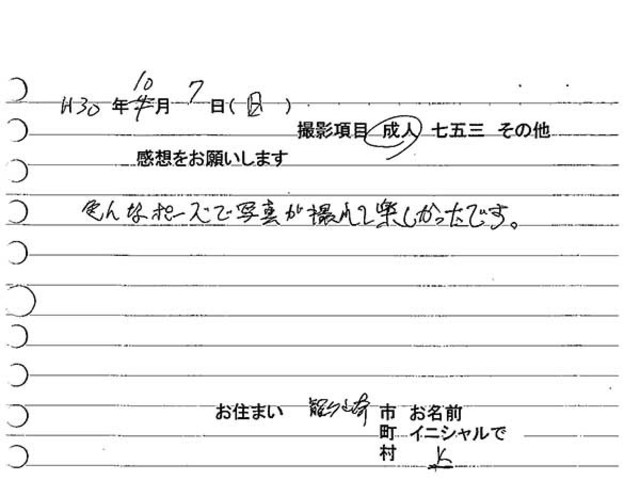 H30年10月7日(日)
撮影項目 成人 七五三 その他
感想をお願いします
色んなポーズで写真が撮れて楽しかったです。
お住まい 龍ケ崎 市 お名前
町 イニシャルで
村 K